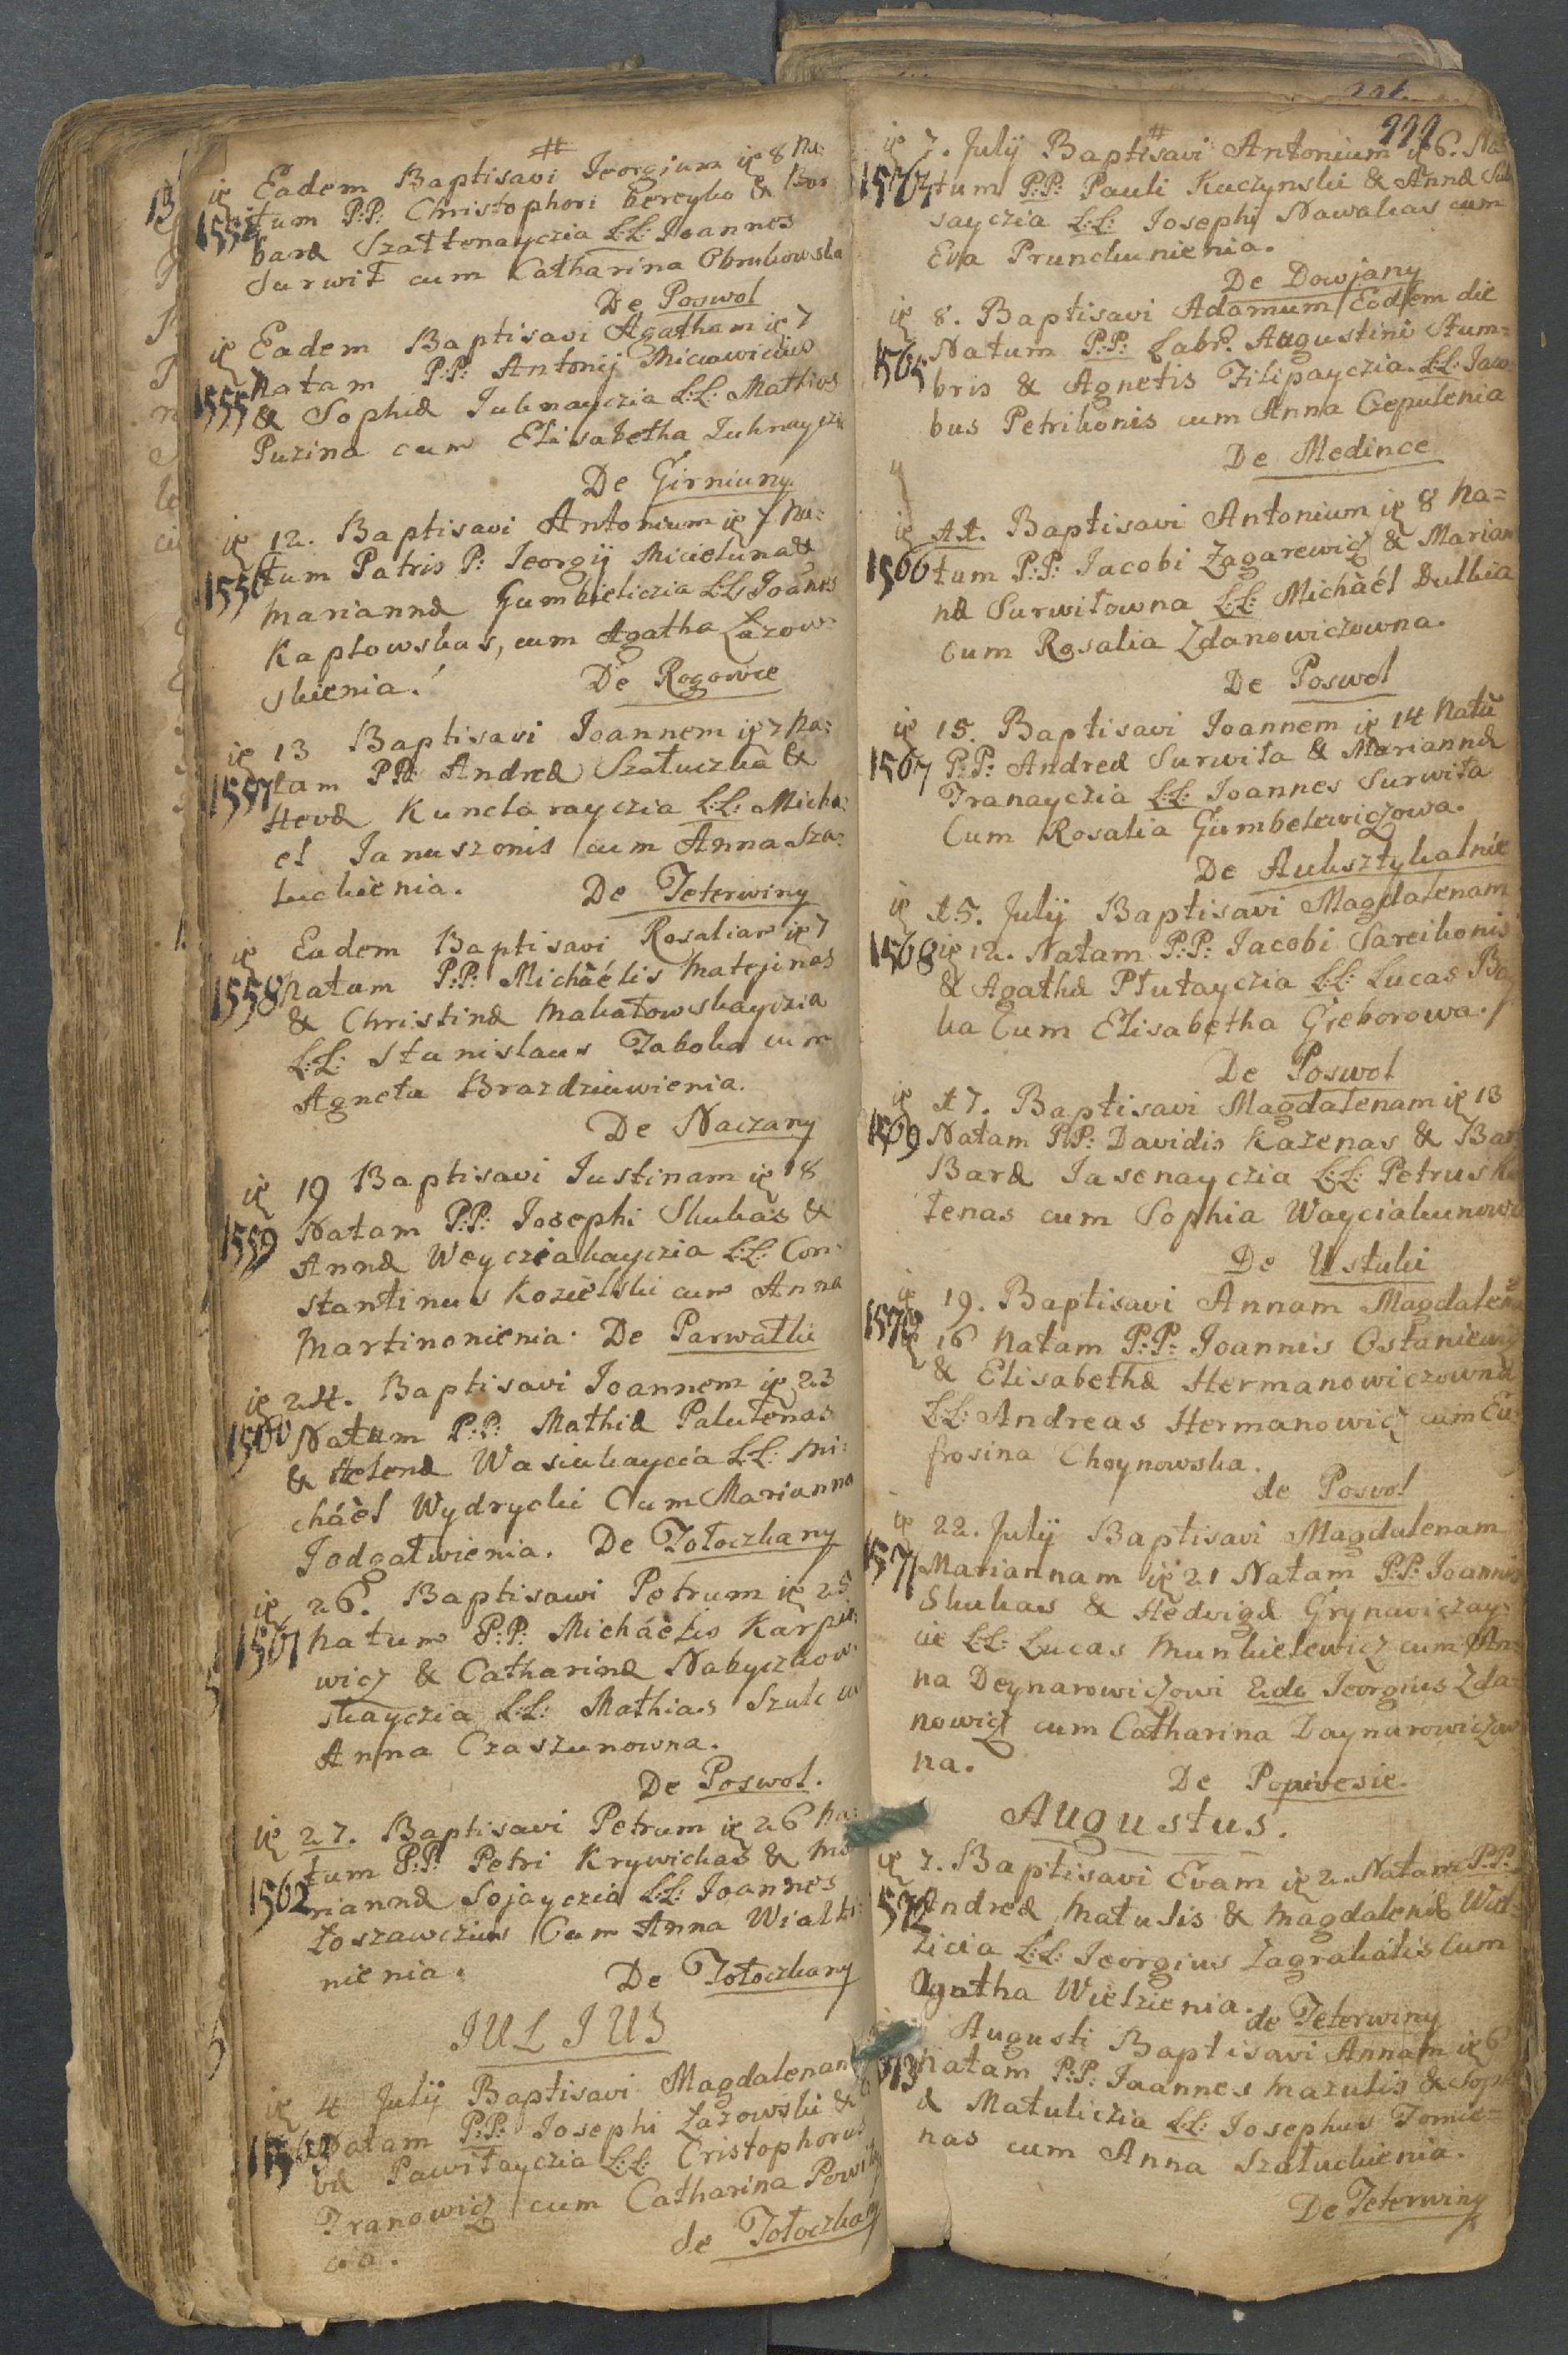 #
ię Eadem Baptisavi Jeorgium ię 8 Na:
1554 tum P:P: Christophori bereyko & Bar
bara Szattenayczia L:L: Joannes
Surwit cum Catharina Obrukowska
De Poswol
ię Eadem Baptisavi Agatham ię 7
1555 Natam P:P: Antonij Micawicius
& Sophiæ Juknayczia L:L: Mathias
Puzina cum Elisabetha Juknayczi
De Girniuny
ię 12. Baptisavi Antonium ię 7 Na:
1556 tum Patris P: Jeorgij Micieluna &
Mariannæ Gumbieliczia L:L: Joañes
Kaplowskas, cum Agatha Łazow:
skienia.
De Rogowie
ię 13 Baptisavi Joannem ię 7 Na:
1557 tam P:P: Andreæ Szatuczka &
Hevæ Kunclarayczia L:L: Micha:
el Januszonis cum Anna Sza:
tuckienia. De Teterwiny
ię Eadem Baptisavi Rosaliam ię 7
1558 Natam P:P: Michäélis Matejunas
& Christinæ Makatowskayczia
L:L: Stanislaus Jaboka cum
Agneta Brazdziuwienia.
De Naczany
ię 19 Baptisavi Justinam ię 18
1559 Natam P:P: Josephi Skukas &
Annæ Weycziakayczia L:L: Con:
stantinus Kozielski cum Anna
Martinonienia. De Parwatki
ię 24. Baptisavi Joannem ię 23
1560 Natum P:P: Mathiæ Palutenas
& Helenæ Wasiukaycia L:L: Mi:
cháèl Wydrycki Cum Marianna
Jodgatwienia. De Tołoczkany
ię 26. Baptisawi Petrum ię 25
1561 Natum P:P: Micháèlis Karpu:
wicz & Catharinæ Nabyczkow:
skayczia L:L: Mathias Szulc cu
Anna Czaszunowna.
De Poswol.
ię 27. Baptisavi Petrum ię 26 Na:
tum P:P: Petri Krywickas & Ma
1562 riannæ Sojayczia L:L: Joannes
Łoszawczius Cum Anna Wialki:
nienia.
De Tołoczkany
JULIUS
ię 4 Julij Baptisavi Magdalenam
Natam P:P: Josephi Łazowski &
væ Pawiłayczia L:L: Cristophorus
Franowicz cum Catharina Powil
cia.
de Tołoczkany
#
ię 7. Julij Baptisavi Antonium ię 6. Na
tum P:P: Pauli Kuczynski & Annæ
sayczia L:L: Josephi Nawakas cum
Eva Prunckunienia.
De Dowjany
ię 8. Baptisavi Adamum Eodem die
1565 Natum P:P: Augustini Stum=
bris & Agnetis Filipayczia. L:L: Jaco
bus Petrikonis cum Anna Czepulenia
De Medince
ię 11. Baptisavi Antonium ię 8 Na=
1566 tum P:P: Jacobi Zagarewicz & Marian
næ Surwiłowna L:L: Micháél Dulkia
Cum Rosalia Zdanowiczowna.
De Poswol
ię 15. Baptisavi Joannem ię 14 Natũ
1567 P:P: Andreæ Surwiła & Mariannæ
Franayczia L:L: Joannes Surwiła
Cum Rosalia Gumbelewiczowa.
De Auksztykalnie
ię 15. Julij Baptisavi Magdalenam
1568 ię 12. Natam P:P: Jacobi Sareikonis
& Agathæ Plutayczia L:L: Lucas
ka Cum Elisabetha Gieborowa.
De Poswol
ię 17. Baptisavi Magdalenam ię 13
1569 Natam P:P: Davidis Kazenas & Bar
Baræ Jasenayczia L:L: Petrus
tenas cum Sophia Wayciakunowa
De Ustuki
ię 19. Baptisavi Annam Magdalenã
1570 ię 16 Natam P:P: Joannis Ostaniewicz
& Elisabethæ Hermanowiczownæ
L:L: Andreas Hermanowicz cum Eu
frosina Choynowska.
de Poswol
ię 22. Julij Baptisavi Magdalenam
1571 Mariannam ię 21 Natam P:P: Joannis
Skukas & Hedvigæ Grynawiczay:
cie L:L: Lucas Munkielewicz cum An=
na Deynarowiczowi 2do Jeorgius Zda=
nowicz cum Catharina Daynarowiczow
na.
De Popiwesie.
Augustus.
ię 7. Baptisavi Evam ię 2. Natam P:P:
572 Andreæ Matulis & Magdalenæ Wiel=
zicia L:L: Jeorgius Zagrakalis Cum
Agatha Wielzienia.
de Teterwiny
Augusti Baptisavi Annam ię 6
Natam P:P: Joannes Mazulis & Soph
æ Matuliczia L:L: Josephus Tomie=
nas cum Anna Szatuckienia.
De Teterwiny